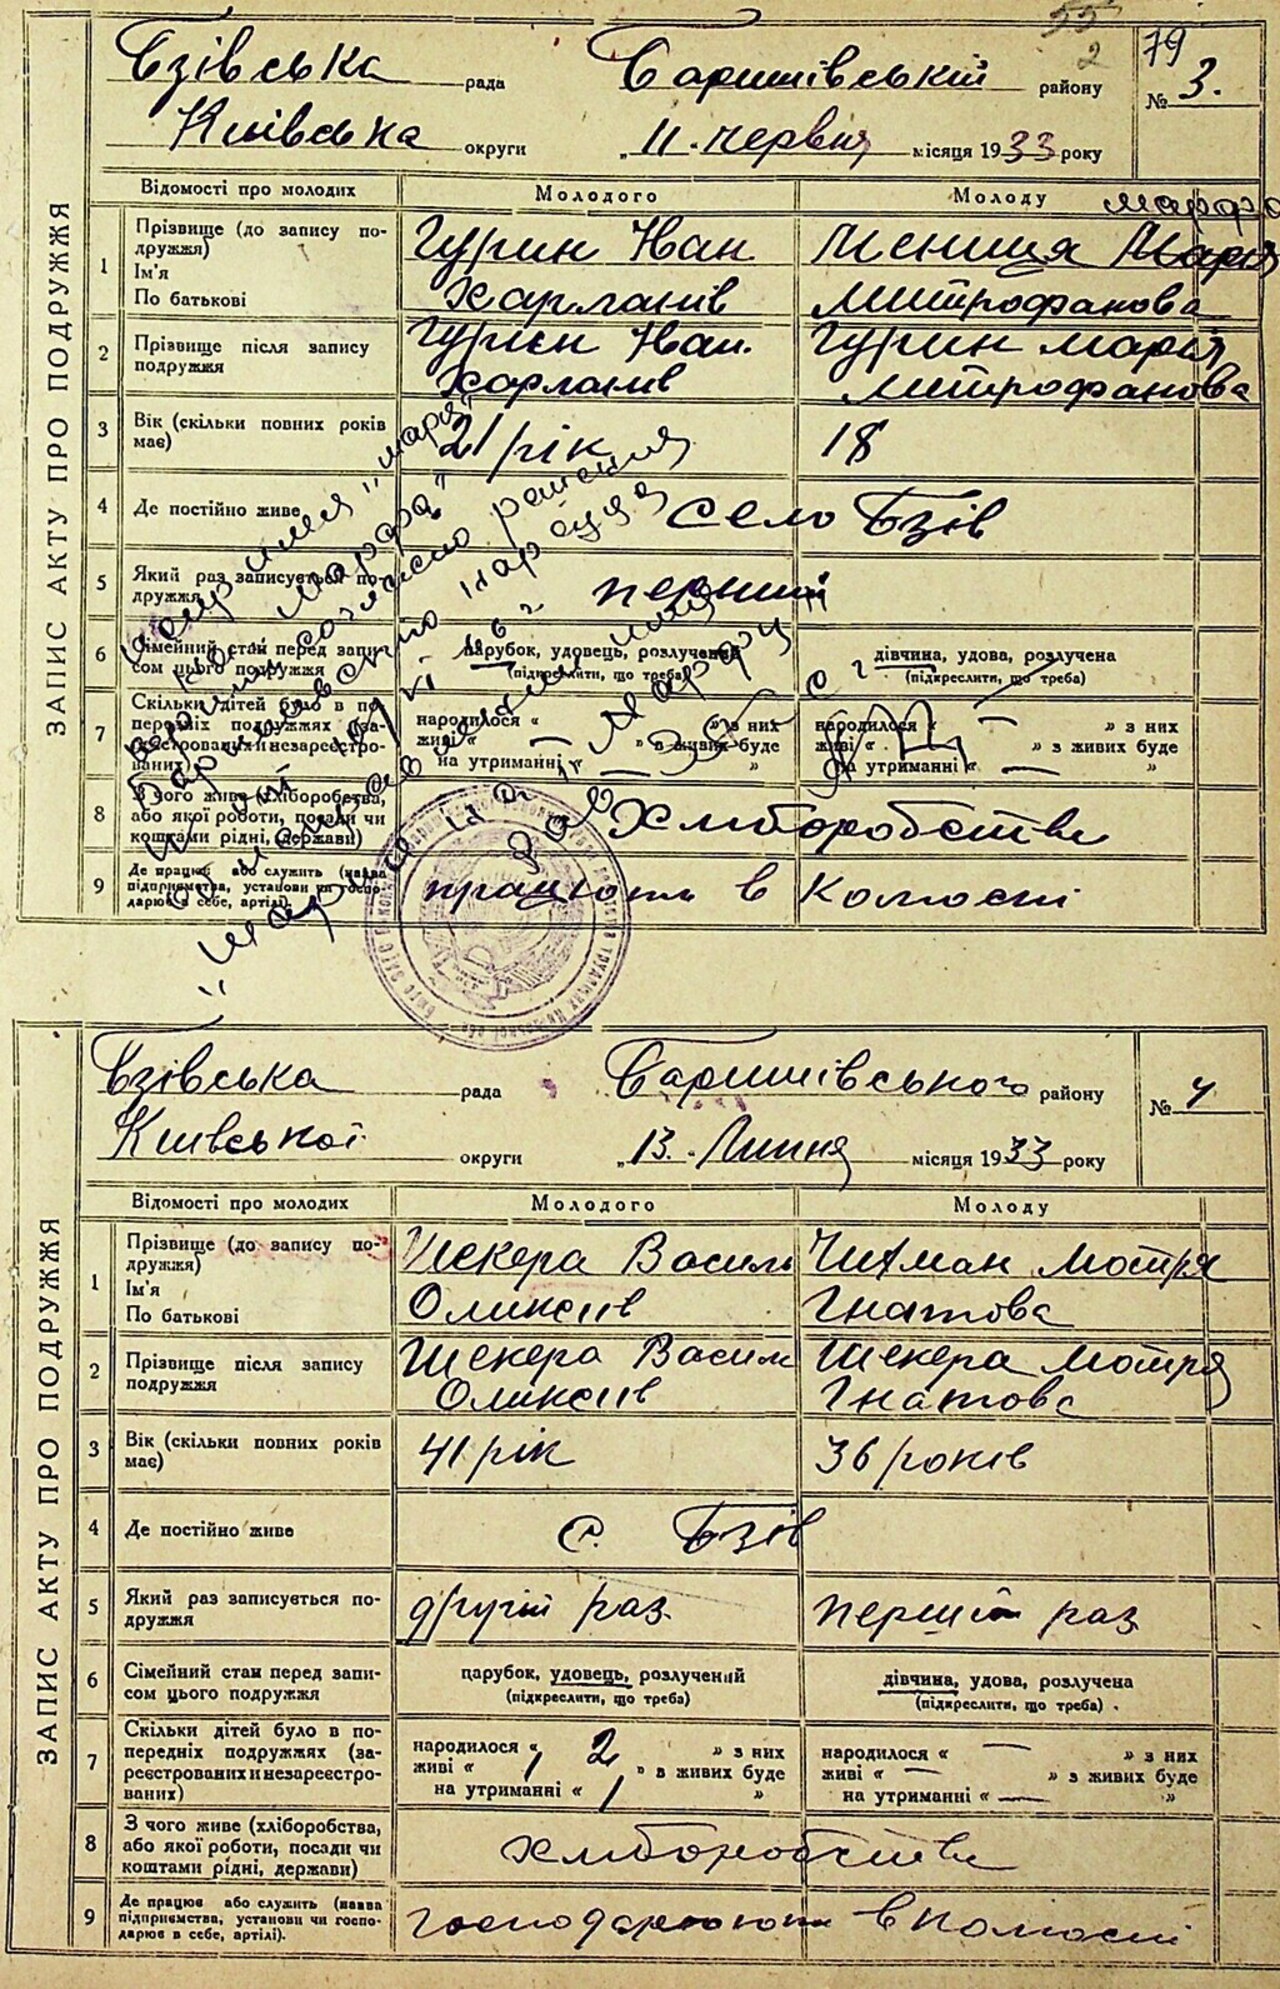 55
2
79
Бзівська рада Баришівській району № 3.
Київська округи „11. червня місяця 1933 року
ЗАПИС АКТУ ПРО ПОДРУЖЖЯ
Відомості про молодих Молодого Молоду
марфа
1 Прізвище (до запису по- Гурин Иван Марія
дружжя)
Ім'я
По батькові Харланів Митрофанова
2 Прізвище після запису Гурин Иван. Гурин Марія
подружжя Харланив Митрофанова
3 Вік (скільки повних років 21 рік 18
має)
4 Де постійно живе село Бзів
5 Який раз записується по- перший
дружжя
6 Сімейний стан перед запи- парубок, удовець, розлучений дівчина, удова, розлучена
сом цього подружжя (підкреслити, що треба) (підкреслити, що треба)
7 Скільки дітей було в по- народилося « — » з них народилося « — » з них
передніх подружжях (за- живі « — » в живих буде живі « » з живих буде
реєстрованих и незареєстро- на утриманні « — » на утриманні « — »
ваних)
8 З чого живе (хліборобства, Хлиборобстви
або якої роботи, посади чи
коштами рідні, держави)
9 Де працює або служить (назва працюють в Колгоспі
підприємства, установи чи госпо-
дарює в себе, артілі).
имя "мария"
"Марфа"
согласно решения
нар суда
Бзівська рада Баришівського району № 4
Київської округи „13. Липня місяця 1933 року
ЗАПИС АКТУ ПРО ПОДРУЖЖЯ
Відомості про молодих Молодого Молоду
1 Прізвище (до запису по- Шекера Василь Чихман Мотря
дружжя)
Ім'я
По батькові Оликсіїв Гнатова
2 Прізвище після запису Шекера Васил Шекера Мотря
подружжя Оликсіїв Гнатова
3 Вік (скільки повних років 41 рік 36 років
має)
4 Де постійно живе с. Бзів
5 Який раз записується по- другий раз. перший раз
дружжя
6 Сімейний стан перед запи- царубок, удовець, розлучений дівчина, удова, розлучена
сом цього подружжя (підкреслити, що треба) (підкреслити, що треба) .
7 Скільки дітей було в по- народилося « 2 » з них народилося « — » з них
передніх подружжях (за- живі « 1 » в живих буде живі « — » з живих буде
реєстрованих и незареєстро- на утриманні « 1 » на утриманні « — »
ваних)
8 З чого живе (хліборобства, хлиборобстви
або якої роботи, посади чи
коштами рідні, держави)
9 Де працює або служить (назва господарюють в колгоспі
підприємства, установи чи госпо-
дарює в себе, артілі).